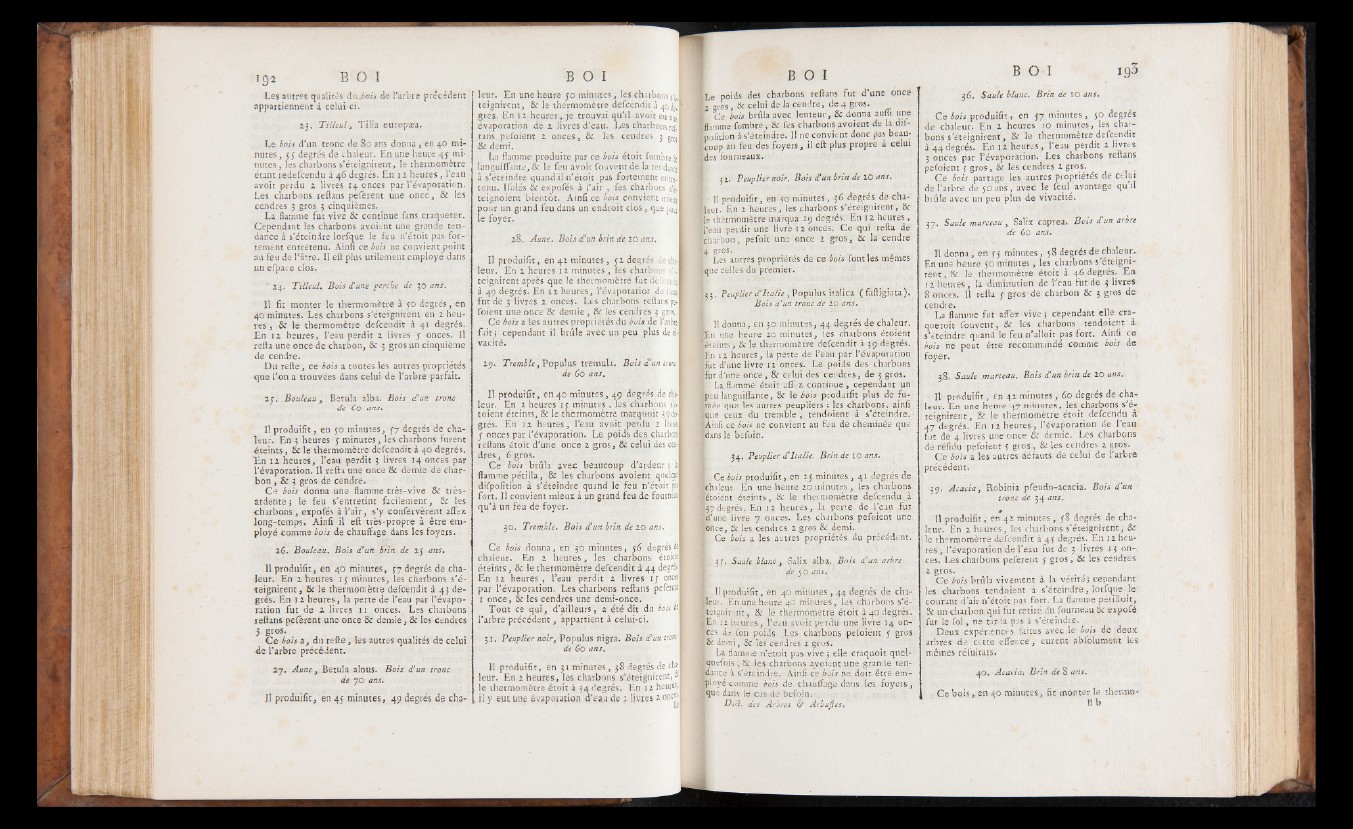 192 B O I
Les autres qualités du bois de l'arbre précédent
appartiennent à celui-ci.
23. Tilleul, Tilia europæa.
Le bois d'un tronc de 80 ans donna, en 40 mi-
nutes, 55 degrés de chaleur. En une heure 45 mi-
nutes, les charbons s'éteignirent, le thermomètre
étant redescendu à 46 degrés. En 12 heures, l'eau
avoit perdu 2 livres 14 onces par l'évaporation.
Les charbons restans pesèrent une once, & les
cendres 3 gros 3 cinquièmes.
La flamme fut vive & continue sans craqueter.
Cependant les charbons avoient une grande ten-
dance à s'éteindre lorsque le feu n'étoit pas for-
tement entretenu. Ainsi ce bois ne convient point
au feu de l'âtre. Il est plus utilement employé dans
un espace clos.
24. Tilleul. Bois d'une perche de 30 ans.
Il fit monter le thermomètre à 50 degrés, en
40 minutes. Les charbons s'éteignirent en 2 heu-
res, & le thermomètre descendit à 41 degrés.
En 12 heures, l'eau perdit 2 livres 5 onces. Il
resta une once de charbon, & 3 gros un cinquième
de cendre.
Du reste, ce bois a toutes les autres propriétés
que l'on a trouvées dans celui de l'arbre parfait.
25. Bouleau, Betula alba. Bois d'un tronc
de 60 ans.
Il produisit, en 50 minutes, 57 degrés de cha-
leur. En 3 heures 5 minutes, les charbons furent
éteints, & le thermomètre descendit à 40 degrés.
En 12 heures, l'eau perdit 3 livres 14 onces par
l'évaporation. Il resta une once & demie de char-
bon, & 3 gros de cendre.
Ce bois donna une flamme très-vive & très-
ardente; le feu s'entretint facilement, & les
charbons, exposés à l'air, s'y conservèrent assez
long-temps. Ainsi il est très-propre à être em-
ployé comme bois de chauffage dans les foyers.
26. Bouleau. Bois d'un brin de 25 ans.
Il produisit, en 40 minutes, 57 degrés de cha-
leur. En 2 heures 15 minutes, les charbons s'é-
teignirent, & le thermomètre descendit à 43 de-
grés. En 12 heures, la perte de l'eau par l'évapo-
ration fut de 2 livres 11 onces. Les charbons
restans pesèrent une once & demie, & les cendres
3 gros.
Ce bois a, du reste, les autres qualités de celui
de l'arbre précédent.
27. Aune, Betula alnus. Bois d'un tronc
de 70 ans.
Il produisit, en 45 minutes, 49 degrés de cha-
B O I
leur. En une heure 50 minutes, les charbons s'é-
teignirent, & le thermomètre descendit à 40 de-
grés. En 12 heures, je trouvai qu'il avoit eu une
évaporation de 2 livres d'eau. Les charbons res-
tans pesoient 2 onces, & les cendres 3 gros
& demi.
La flamme produite par ce bois étoit sombre &
languissante, & le feu avoit souvent de la tendance
à s'éteindre quand il n'étoit pas fortement entre-
tenu. Isolés & exposés à l'air, ses charbons s'é-
teignoient bientôt. Ainsi ce bois convient mieux
pour un grand feu dans un endroit clos, que pour
le foyer.
28. Aune. Bois d'un brin de 20 ans.
Il produisit, en 42 minutes, 52 degrés de cha-
leur. En 2 heures 12 minutes, les charbons s'é-
teignirent après que le thermomètre fut descendu
à 49 degrés. En 12 heures, l'évaporation de l'eau
fut de 3 livres 2 onces. Les charbons restans pe-
soient une once & demie, & les cendres 3 gros.
Ce bois a les autres propriétés du bois de l'arbre
fait; cependant il brûle avec un peu plus de vi-
vacité.
29. Tremble, Populus tremula. Bois d'un tronc
de 60 ans.
Il produisit, en 40 minutes, 49 degrés de cha-
leur. En 2 heures 15 minutes, les charbons é-
toient éteints, & le thermomètre marquoit 49 de-
grés. En 12 heures, l'eau avoit perdu 2 livres
5 onces par l'évaporation. Le poids des charbons
restans étoit d'une once 2 gros, & celui des cen-
dres, 6 gros.
Ce bois brûla avec beaucoup d'ardeur; la
flamme pétilla, & les charbons avoient quelque
disposition à s'éteindre quand le feu n'étoit pas
fort. Il convient mieux à un grand feu de fourneau
qu'à un feu de foyer.
30. Tremble. Bois d'un brin de 20 ans.
Ce bois donna, en 30 minutes, 56 degrés de
chaleur. En 2 heures, les charbons étoient
éteints, & le thermomètre descendit à 44 degrés.
En 12 heures, l'eau perdit 2 livres 15 onces
par l'évaporation. Les charbons restans pesèrent
1 once, & les cendres une demi-once.
Tout ce qui, d'ailleurs, a été dit du bois de
l'arbre précédent, appartient à celui-ci.
31. Peuplier noir, Populus nigra. Bois d'un tronc
de 60 ans.
Il produisit, en 31 minutes, 38 degrés de cha-
leur. En 2 heures, les charbons s'éteignirent, &
le thermomètre étoit à 34 degrés. En 12 heures,
il y eut une évaporation d'eau de 2 livres 2 onces.
Le
B O I
Le poids des charbons restans fut d'une once
2 gros, & celui de la cendre, de 4 gros.
Ce bois brûla avec lenteur, & donna aussi une
flamme sombre, & ses charbons avoient de la dis-
position à s'éteindre. Il ne convient donc pas beau-
coup au feu des foyers, il est plus propre à celui
des fourneaux.
32. Peuplier noir. Bois d'un brin de 20 ans.
Il produisit, en 30 minutes, 36 degrés de cha-
leur. En 2 heures, les charbons s'éteignirent, &
le thermomètre marqua 29 degrés. En 12 heures,
l'eau perdit une livre 12 onces. Ce qui resta de
charbon, pesoit une once 2 gros, & la cendre
4 gros.
Les autres propriétés de ce bois sont les mêmes
que celles du premier.
33. Peuplier d'Italie, Populus italica (fastigiata).
Bois d'un tronc de 20 ans.
Il donna, en 30 minutes, 44 degrés de chaleur.
En une heure 20 minutes, les charbons étoient
éteints, & le thermomètre descendit à 39 degrés.
En 12 heures, la perte de l'eau par l'évaporation
fut d'une livre 12 onces. Le poids des charbons
fut d'une once, & celui des cendres, de 3 gros.
La flamme étoit assez continue, cependant un
peu languissante, & le bois produisit plus de fu-
mée que les autres peupliers; les charbons, ainsi
que ceux du tremble, tendoient à s'éteindre.
Ainsi ce bois ne convient au feu de cheminée que
dans le besoin.
34. Peuplier d'Italie. Brin de 10 ans.
Ce bois produisit, en 25 minutes, 41 degrés de
chaleur. En une heure 20 minutes, les charbons
étoient éteints, & le thermomètre descendu à
37 degrés. En 12 heures, la perte de l'eau fut
d'une livre 7 onces. Les charbons pesoient une
once, & les cendres 2 gros & demi.
Ce bois a les autres propriétés du précédent.
35. Saule blanc, Salix alba. Bois d'un arbre
de 50 ans.
Il produisit, en 40 minutes, 44 degrés de cha-
leur. En une heure 40 minutes, les charbons s'é-
teignirent, & le thermomètre étoit à 40 degrés.
En 12 heures, l'eau avoit perdu une livre 14 on-
ces de son poids. Les charbons pesoient 5 gros
& demi, & les cendres 2 gros.
La flamme n'étoit pas vive; elle craquoit quel-
quefois, & les charbons avoient une grande ten-
dance à s'éteindre. Ainsi ce bois ne doit être em-
ployé comme bois de chauffage dans les foyers,
que dans le cas de besoin.
Dict. des Arbres & Arbustes.
B O I 193
36. Saule blanc. Brin de 10 ans.
Ce bois produisit, en 57 minutes, 50 degrés
de chaleur. En 2 heures 10 minutes, les char-
bons s'éteignirent, & le thermomètre descendit
à 44 degrés. En 12 heures, l'eau perdit 2 livres
3 onces par l'évaporation. Les charbons restans
pesoient 5 gros, & les cendres 2 gros.
Ce bois partage les autres propriétés de celui
de l'arbre de 50 ans, avec le seul avantage qu'il
brûle avec un peu plus de vivacité.
37. Saule marceau, Salix caprea. Bois d'un arbre
de 60 ans.
Il donna, en 55 minutes, 58 degrés de chaleur.
En une heure 50 minutes, les charbons s'éteigni-
rent, & le thermomètre étoit à 46 degrés. En
12 heures, la diminution de l'eau fut de 3 livres
8 onces. Il resta 5 gros de charbon & 3 gros de
cendre.
La flamme fut assez vive; cependant elle cra-
queroit souvent, & les charbons tendoient à
s'éteindre quand le feu n'alloit pas fort. Ainsi ce
bois ne peut être recommandé comme bois de
foyer.
38. Saule marceau. Bois d'un brin de 20 ans.
Il produisit, en 42 minutes, 60 degrés de cha-
leur. En une heure 37 minutes, les charbons s'é-
teignirent, & le thermomètre étoit descendu à
47 degrés. En 12 heures, l'évaporation de l'eau
fut de 4 livres une once & demie. Les charbons
de résidu pesoient 5 gros, & les cendres 2 gros.
Ce bois a les autres défauts de celui de l'arbre
précédent.
39. Acacia, Robinia pseudo-acacia. Bois d'un
tronc de 34 ans.
Il produisit, en 42 minutes, 58 degrés de cha-
leur. En 2 heures, les charbons s'éteignirent, &
le thermomètre descendit à 45 degrés. En 12 heu-
res, l'évaporation de l'eau fut de 3 livres 13 on-
ces. Les charbons pesèrent 5 gros, & les cendres
2 gros.
Ce bois brûla vivement à la vérité; cependant
les charbons tendoient à s'éteindre, lorsque le
courant d'air n'étoit pas fort. La flamme pétilloit,
& un charbon qui fut retiré du fourneau & exposé
sur le sol, ne tarda pas à s'éteindre.
Deux expériences faites avec le bois de deux
arbres de cette essence, eurent absolument les
mêmes résultats.
40. Acacia. Brin de 8 ans.
Ce bois, en 40 minutes, fit monter le thermo-
B b